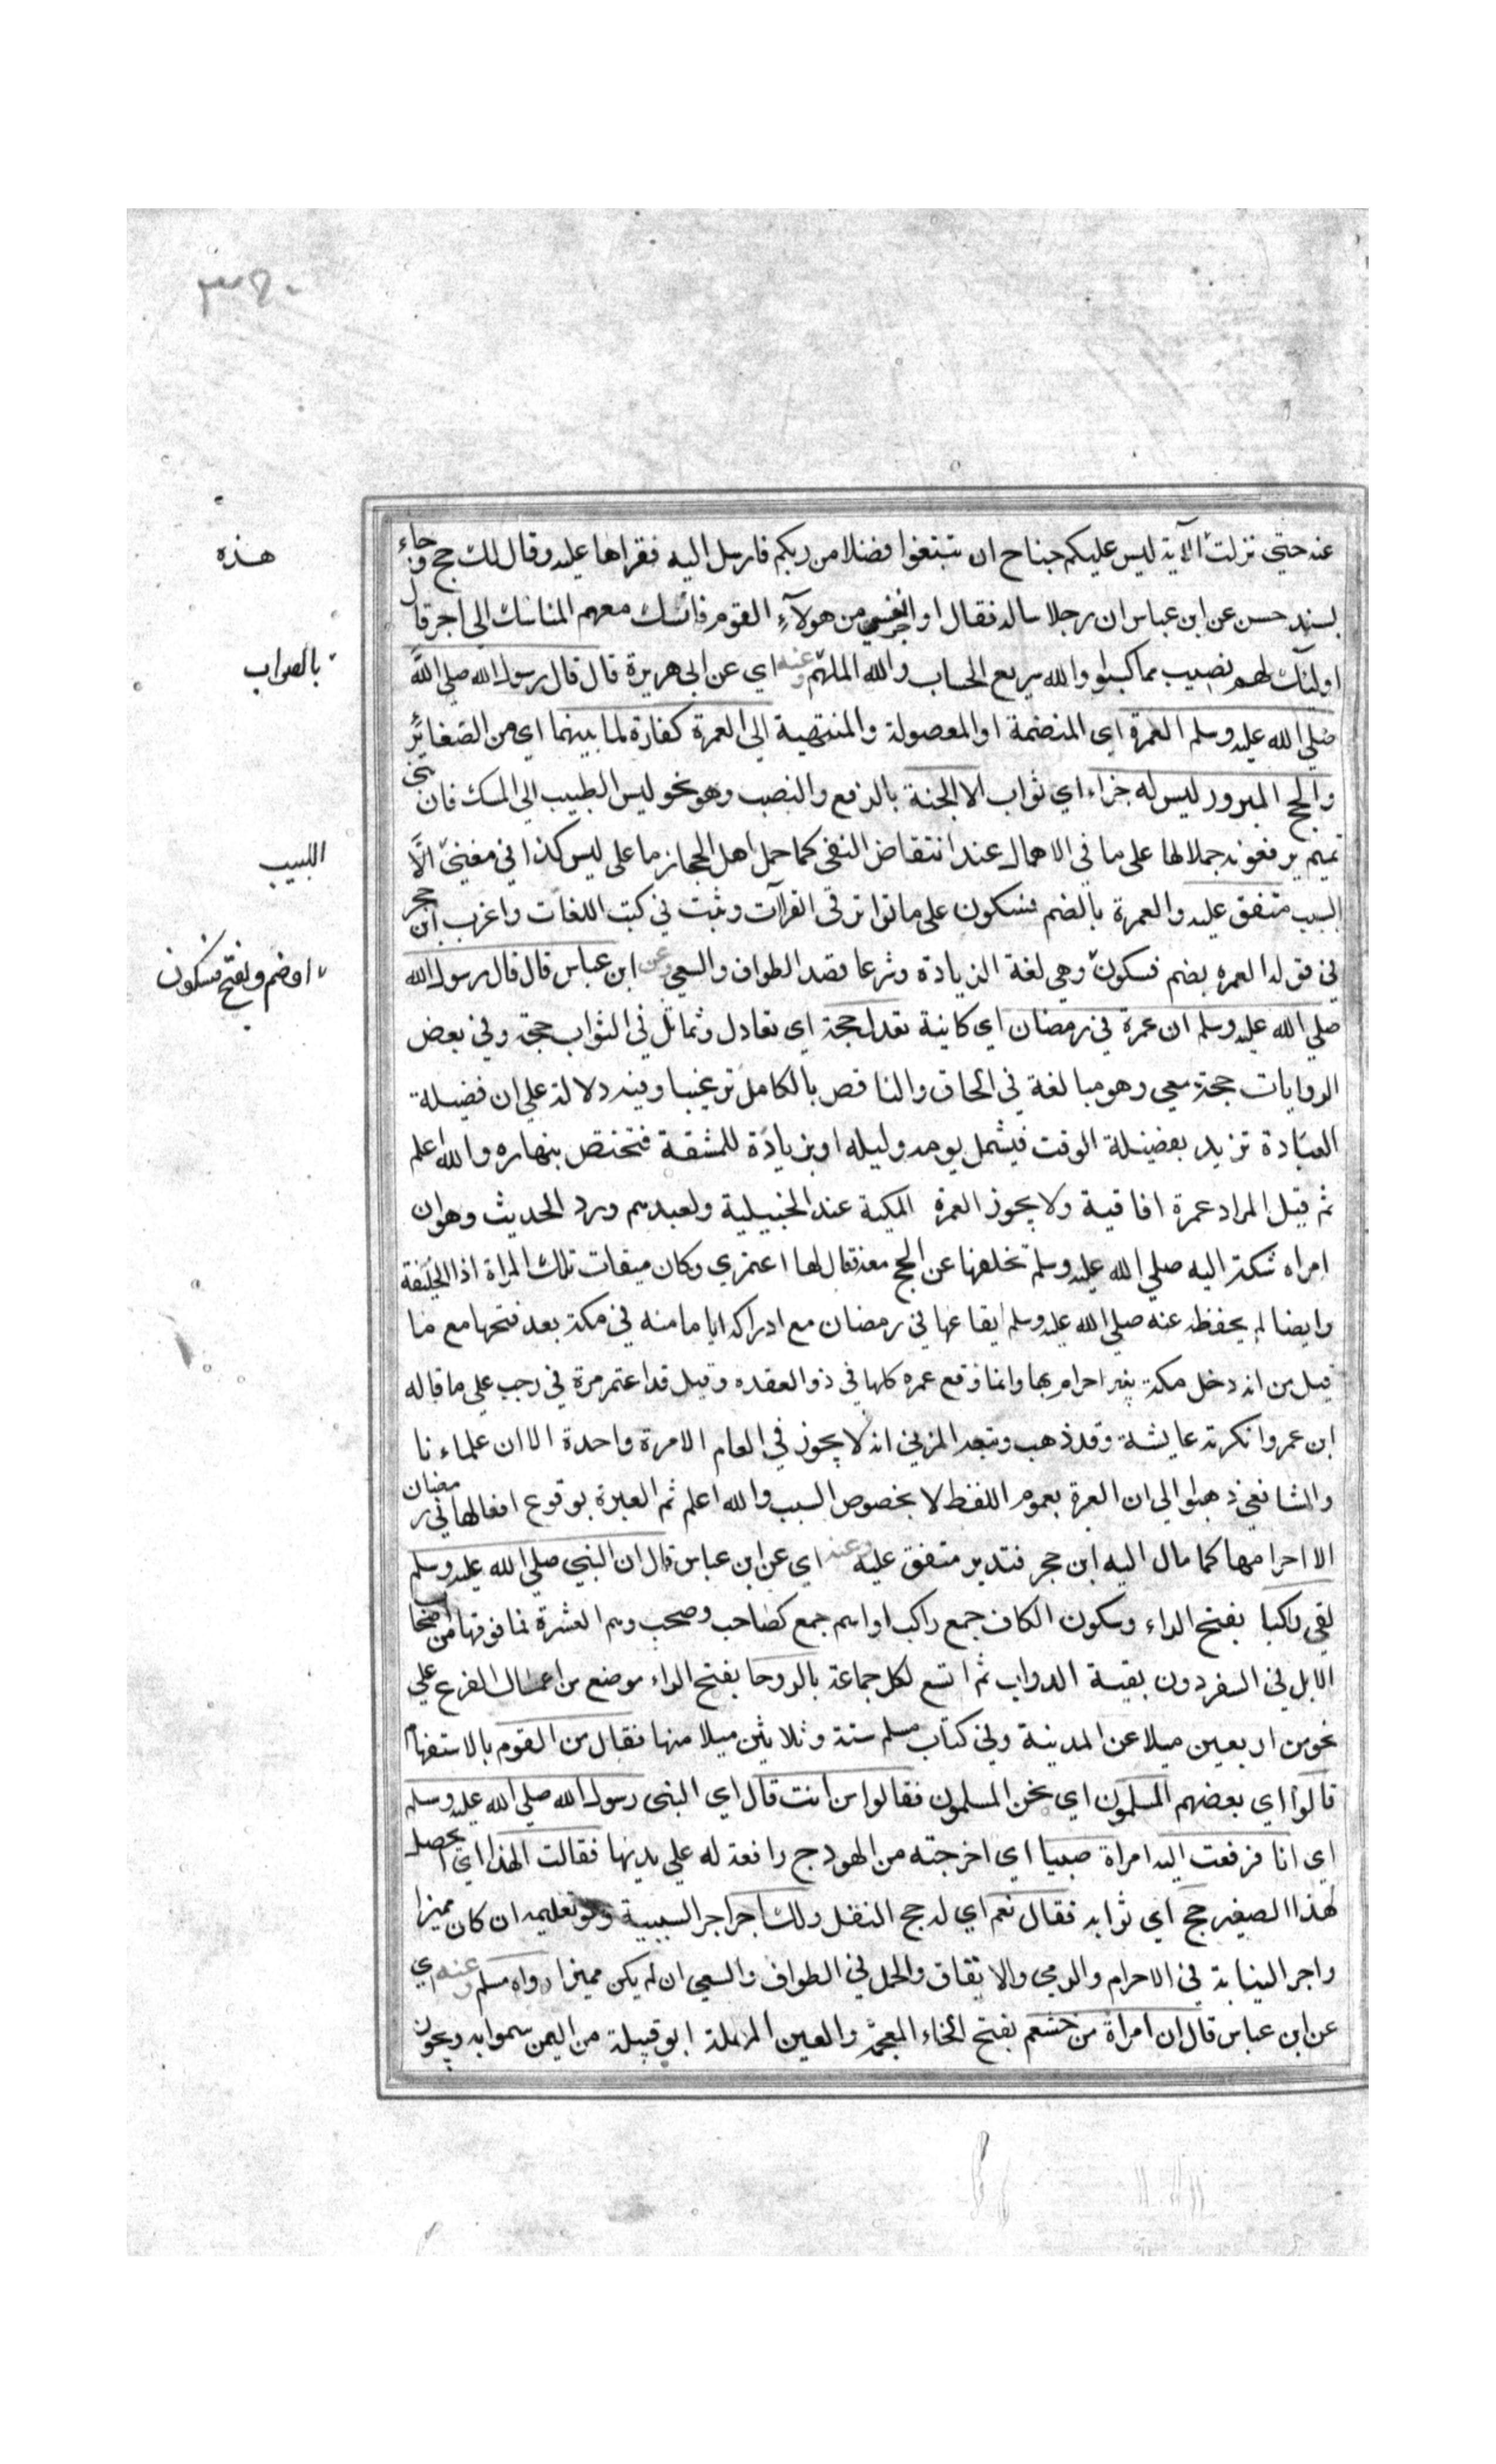 عنه حتى نزلت الآية ليس عليكم جناح ان تبتغوا فضلا من ربكم فارسل اليه فقراها عليه وقال لك حج وجاء
بسند حسن عن ابن عباس ان رجلا ساله فقال اواجر نفسي من هولآء القوم فانسك معهم المناسك الى اجر قال
اولئك لهم نصيب مما كسبوا والله سريع الحساب والله الملهم وعنه اي عن ابي هريرة قال قال رسول الله صلى الله
صلى الله عليه وسلم العمرة اي المنضمة او الموصولة والمنتهية الى العمرة كفارة لما بينهما اي من الصغائر
والحج المبرور ليس له جزاء اي ثواب الا الجنة بالرفع والنصب وهو نحو ليس الطيب الى المسك فان بني
تميم يرفعونه حملا لها على ما في الاهمال عند انتقاض النفي كما حمل اهل الحجاز ما على ليس كذا في مغني الا
السبب متفق عليه والعمرة بالضم فسكون على ما تواتر في القرآت وثبت في كتب اللغات واغرب ابن حجر
في قوله العمره بضم فسكون وهي لغة الزيادة وشرعا قصد الطواف والسعي وعن ابن عباس قال قال رسول الله
صلى الله عليه وسلم ان عمرة في رمضان اي كاينة تعدل حجة اي تعادل وتماثل في الثواب حجة وفي بعض
الروايات حجة معي وهو مبالغة في الحاق والناقص بالكامل ترغيبا وفيه دلالة على ان فضيلة
العبادة تزيد بفضيلة الوقت فيشمل يومه وليله او بزيادة للمشقة فتختص بنهاره والله اعلم
ثم قيل المراد عمرة افاقية ولا يجوز العمرة المكية عند الحنبيلية ولعبدهم ورد الحديث وهو ان
امراه شكت اليه صلى الله عليه وسلم تخلفها عن الحج معه فقال لها اعتمري وكان ميقات تلك المراة اذا الحليفة
وايضا لم يحفظ عنه صلى الله عليه وسلم ايقاعها في رمضان مع ادراكه اياما منه في مكة بعد فتحها مع ما
قيل من انه دخل مكة بغير احرام بها وانما وقع عمره كلها في ذو العقده وقيل قد اعتمر مرة في رجب على ما قاله
ابن عمر وانكرته عايشة وقد ذهب وتبعه المزني انه لا يجوز في العام الا مرة واحدة الا ان علماءنا
والشافعي ذهبوا الى ان العبرة بعموم اللفظ لا بخصوص السبب والله اعلم ثم العبرة بوقوع افعالها في رمضان
الا احرامها كما مال اليه ابن حجر فتدبر متفق عليه وعنه اي عن ابن عباس قال ان النبي صلى الله عليه وسلم
لقي ركبا بفتح الراء وسكون الكاف جمع راكب او اسم جمع كصاحب وصحب وهم العشرة فما فوقها من اصحا
الابل في السفر دون بقية الدواب ثم اتسع لكل جماعة بالروحا بفتح الراء موضع من اعمال الفرع على
نحو من اربعين ميلا عن المدينة وفي كتاب مسلم ستة وثلاثين ميلا منها فقال من القوم بالاستفهام
قالوا اي بعضهم المسلمون اي نحن المسلمون فقالوا من انت قال اي النبي رسول الله صلى الله عليه وسلم
اي انا فرفعت اليه امراة صبيا اي اخرجته من الهودج رافعة له على يديها فقالت الهذا اي ايحصل
لهذا الصغير حج اي ثوابه فقال نعم اي له حج النفل ولك اجر اجر السببية وهو تعليمه ان كان مميزا
واجر النيابة في الاحرام والرمي والايقاف والحمل في الطواف والسعي ان لم يكن مميزا رواه مسلم وعنه اي
عن ابن عباس قال ان امراة من خثعم بفتح الخاء المعجمة والعين المهملة ابو قبيلة من اليمن سموا به ويجوز
هذه
بالصواب
اللبيب
او ضم وبفتح فسكون